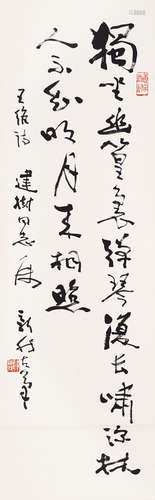 獨坐幽篁裏彈琴復長嘯深林
人不知明月來相照
王維詩 建樹同志屬 新我左筆